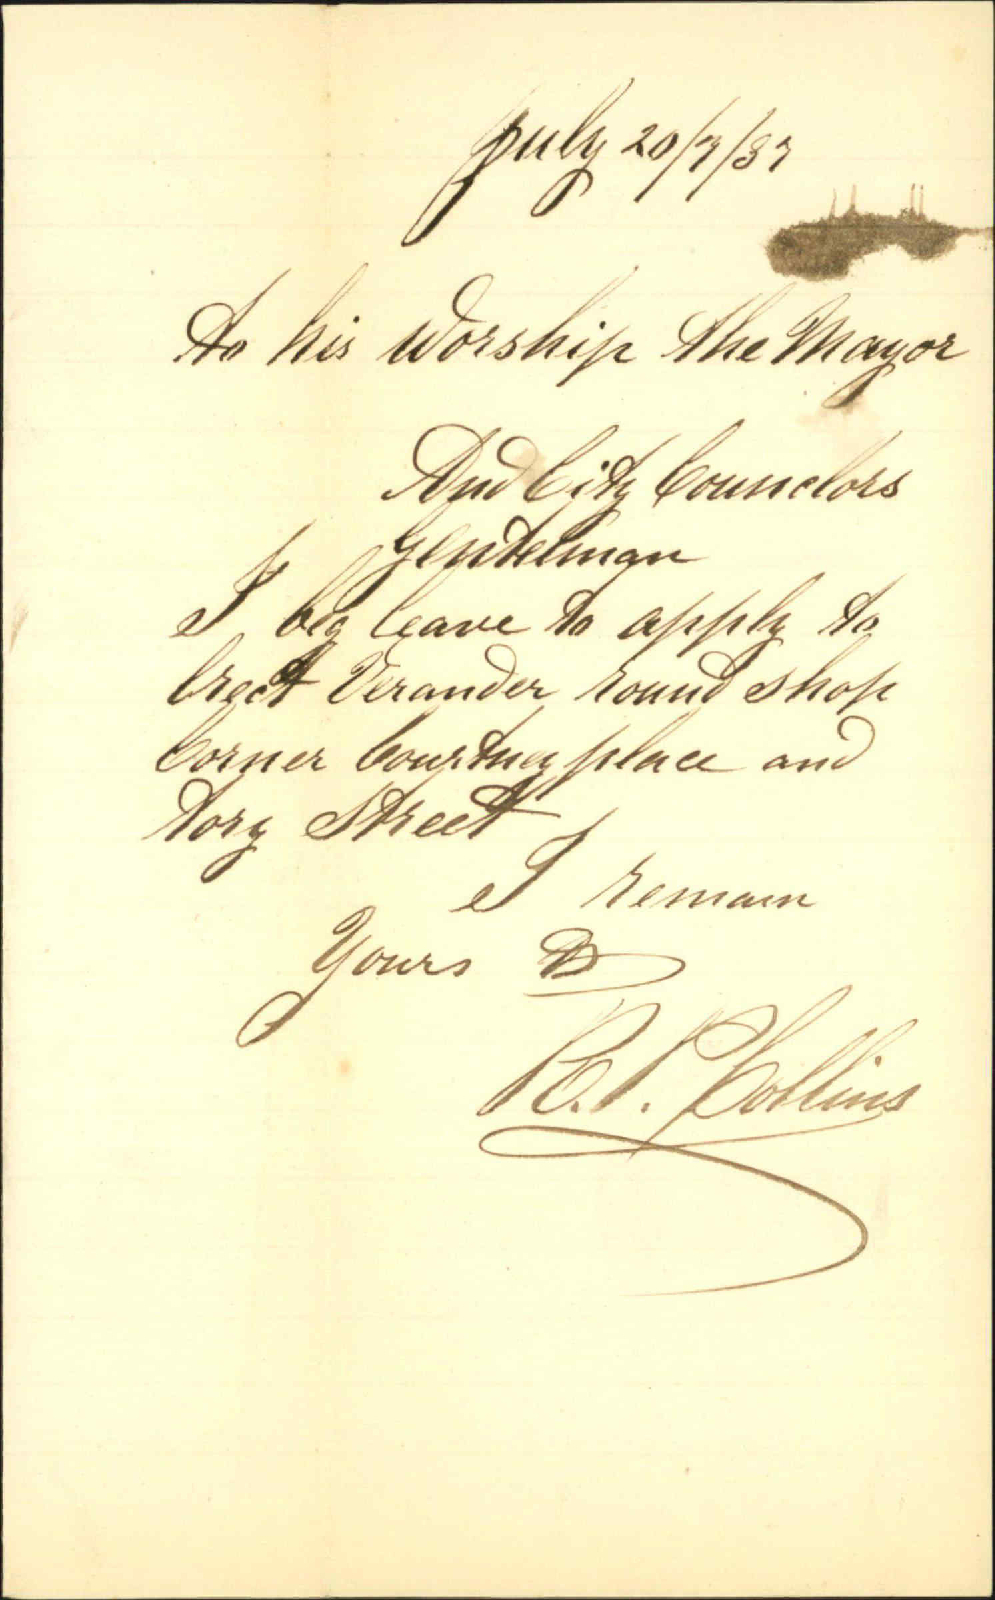 July 20/7/87
To his Worship the Mayor
And City Counclors
Gentelman
I beg leave to apply to
Erect Verander round shop
Corner Courtney place and
tory Street
I remain
Yours
R. P. Collins